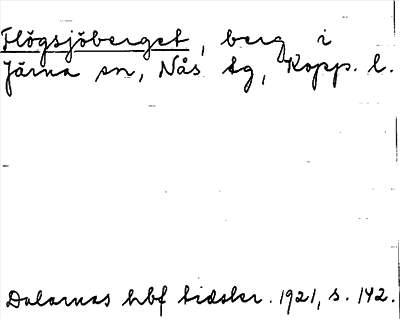 Flögsjöberget, berg i
Järna sn, Nås tg, Kopp. l.
Dalarnas hbf tidskr. 1921, s. 142.